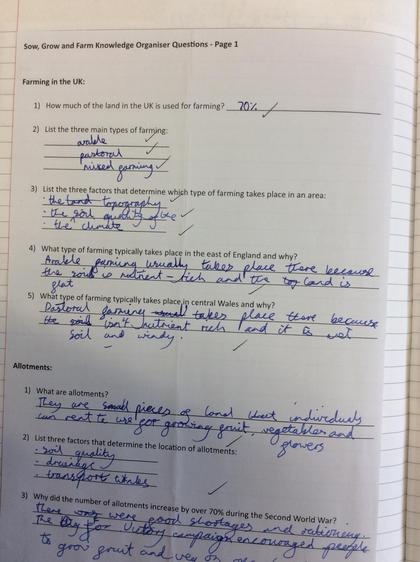 Sow, Grow and Farm Knowledge Organiser Questions - Page 1
Farming in the UK:
1) How much of the land in the UK is used for farming? 70%
2) List the three main types of farming:
arable
pastoral
mixed farming
3) List the three factors that determine which type of farming takes place in an area:
· the land topography
· the soil quality of the
· the climate
4) What type of farming typically takes place in the east of England and why?
Arable farming usually takes place there because
the soil is nutrient-rich and the land is
flat
5) What type of farming typically takes place in central Wales and why?
Pastoral farming usual takes place there because
the soil isn't nutrient rich and it is wet
soil and windy.
Allotments:
1) What are allotments?
They are small pieces of land that individuals
can rent to use for growing fruit, vegetables and
flowers
2) List three factors that determine the location of allotments:
· soil quality
· drainage
· transport links
3) Why did the number of allotments increase by over 70% during the Second World War?
there were food shortages and rationing.
The Dig for Victory campaign encouraged people
to grow fruit and veg on